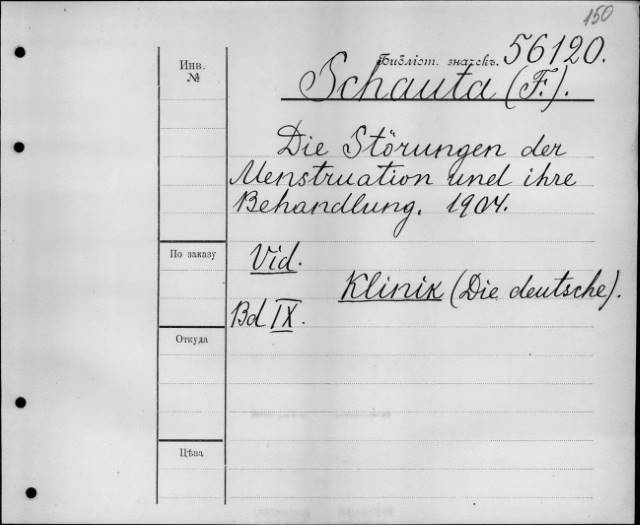 150
Библіот. значекъ. 56120.
Инв.
№
Schauta (F.).
Die Störungen der
Menstruation und ihre
Behandlung. 1904.
По заказу
Vid.
Klinik (Die deutsche).
Bd IX.
Откуда
Цѣна